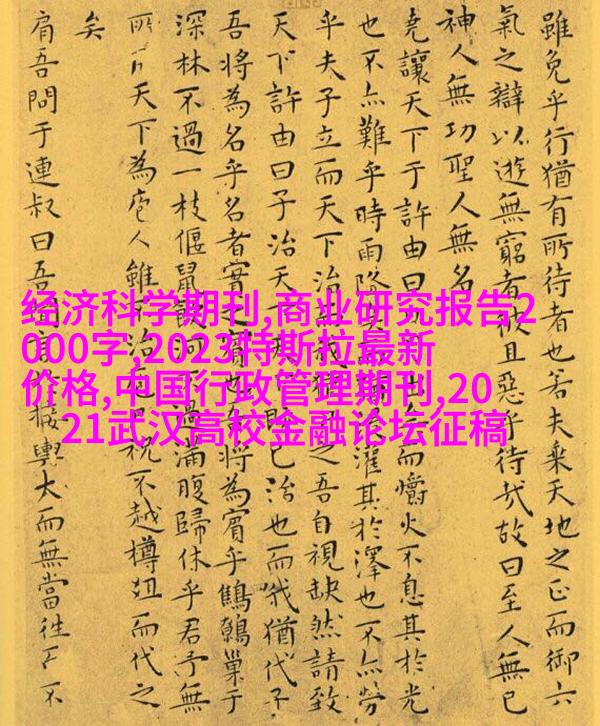 雖免乎行猶有所待者也若夫乘天地之正而御六
氣之辯以遊無窮者彼且惡乎待哉故曰至人無己
神人無功聖人無名
堯讓天下于許由曰出矣而爝火不息其於光
也不亦難乎時雨降灌其於澤也不亦勞
乎夫子立而天下治我猶之吾自視缺然請致
天下許由曰子治天下已治也而我猶代子
吾將為名乎名者實之賓也吾將為賓乎鷦鷯巢于
深林不過一枝偃鼠飲河不過滿腹歸休乎君予無
所天下為庖人雖不治庖祝不越樽俎而代之
矣
肩吾問于連叔曰吾聞言於接輿大而無當往不
经济科学期刊,商业研究报告2
000字,2023特斯拉最新
价格,中国行政管理期刊,20
21武汉高校金融论坛征稿